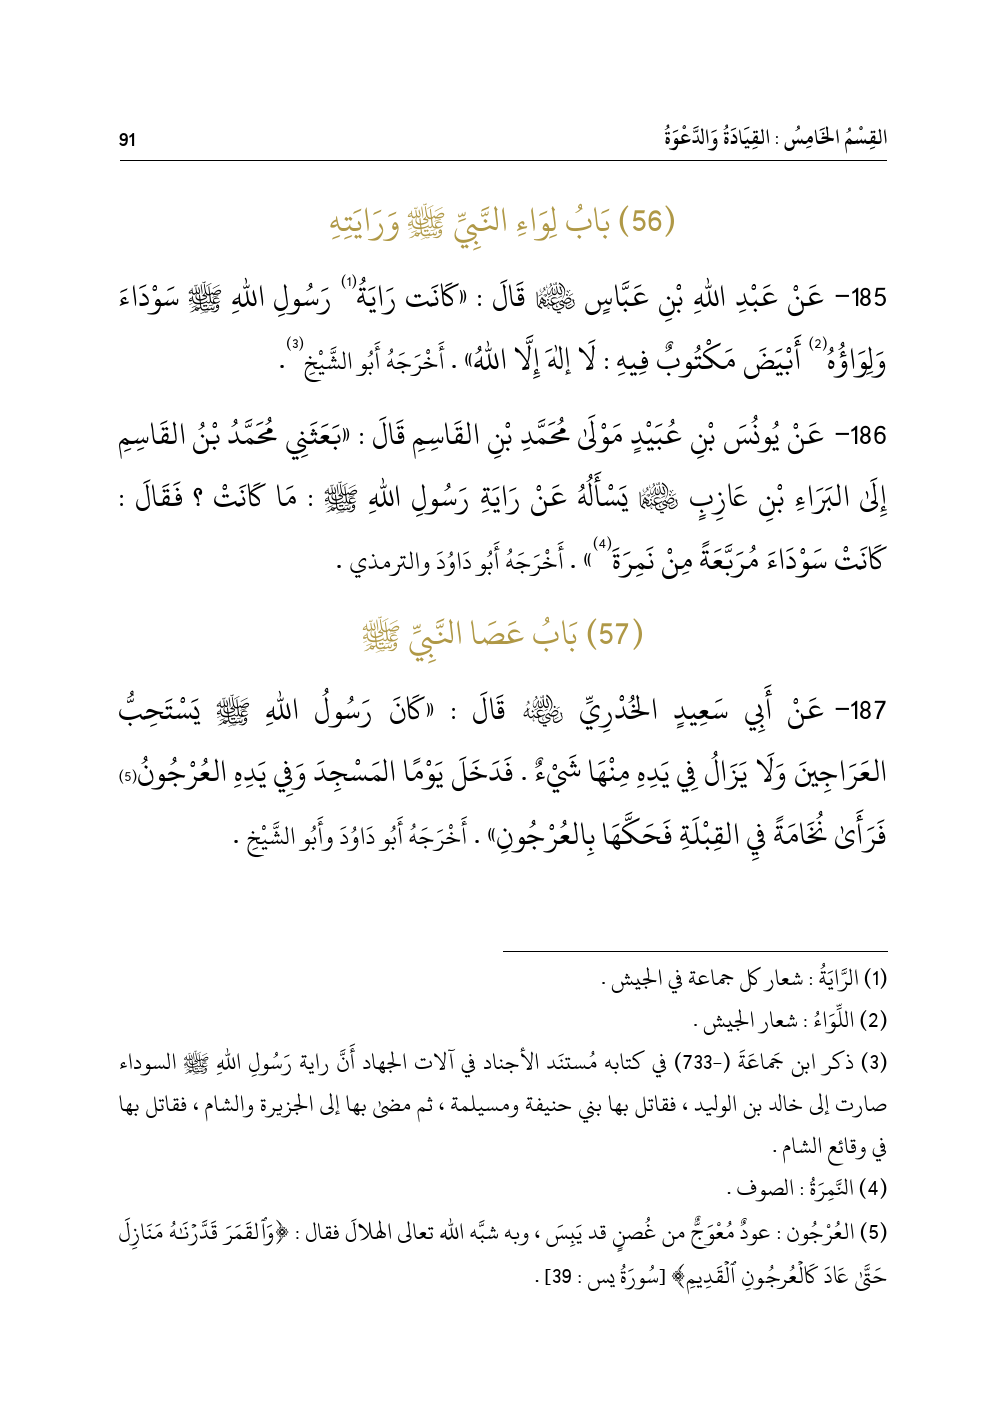 القِسْمُ الخَامِسُ : القِيَادَةُ وَالدَّعْوَةُ 91
(56) بَابُ لِوَاءِ النَّبِيِّ ﷺ وَرَايَتِهِ
185– عَنْ عَبْدِ اللهِ بْنِ عَبَّاسٍ رضي الله عنهما قَالَ : «كَانَت رَايَةُ(1) رَسُولِ اللهِ ﷺ سَوْدَاءَ
وَلِوَاؤُهُ(2) أَبْيَضَ مَكْتُوبٌ فِيهِ : لَا إلٰهَ إِلَّا اللهُ» . أَخْرَجَهُ أَبُو الشَّيْخِ(3) .
186– عَنْ يُونُسَ بْنِ عُبَيْدٍ مَوْلَىٰ مُحَمَّدِ بْنِ القَاسِمِ قَالَ : «بَعَثَنِي مُحَمَّدُ بْنُ القَاسِمِ
إِلَىٰ البَرَاءِ بْنِ عَازِبٍ رضي الله عنهما يَسْأَلُهُ عَنْ رَايَةِ رَسُولِ اللهِ ﷺ : مَا كَانَتْ ؟ فَقَالَ :
كَانَتْ سَوْدَاءَ مُرَبَّعَةً مِنْ نَمِرَةَ(4)» . أَخْرَجَهُ أَبُو دَاوُدَ والترمذي .
(57) بَابُ عَصَا النَّبِيِّ ﷺ
187– عَنْ أَبِي سَعِيدٍ الخُدْرِيِّ رضي الله عنه قَالَ : «كَانَ رَسُولُ اللهِ ﷺ يَسْتَحِبُّ
العَرَاجِينَ وَلَا يَزَالُ فِي يَدِهِ مِنْهَا شَيْءٌ . فَدَخَلَ يَوْمًا المَسْجِدَ وَفِي يَدِهِ العُرْجُونُ(5)
فَرَأَىٰ نُخَامَةً فِي القِبْلَةِ فَحَكَّهَا بِالعُرْجُونِ» . أَخْرَجَهُ أَبُو دَاوُدَ وأَبُو الشَّيْخِ .
(1) الرَّايَةُ : شعار كل جماعة في الجيش .
(2) اللِّوَاءُ : شعار الجيش .
(3) ذكر ابن جَماعَةَ (-733) في كتابه مُستنَد الأجناد في آلات الجهاد أَنَّ راية رَسُولِ اللهِ ﷺ السوداء
صارت إلى خالد بن الوليد ، فقاتل بها بني حنيفة ومسيلمة ، ثم مضىٰ بها إلى الجزيرة والشام ، فقاتل بها
في وقائع الشام .
(4) النَّمِرَةُ : الصوف .
(5) العُرْجُون : عودٌ مُعْوَجٌّ من غُصنٍ قد يَبِسَ ، وبه شبَّه الله تعالى الهلالَ فقال : ﴿وَٱلقَمَرَ قَدَّرْنَٰهُ مَنَازِلَ
حَتَّىٰ عَادَ كَالْعُرجُونِ ٱلْقَدِيمِ﴾ [سُورَةُ يس : 39] .